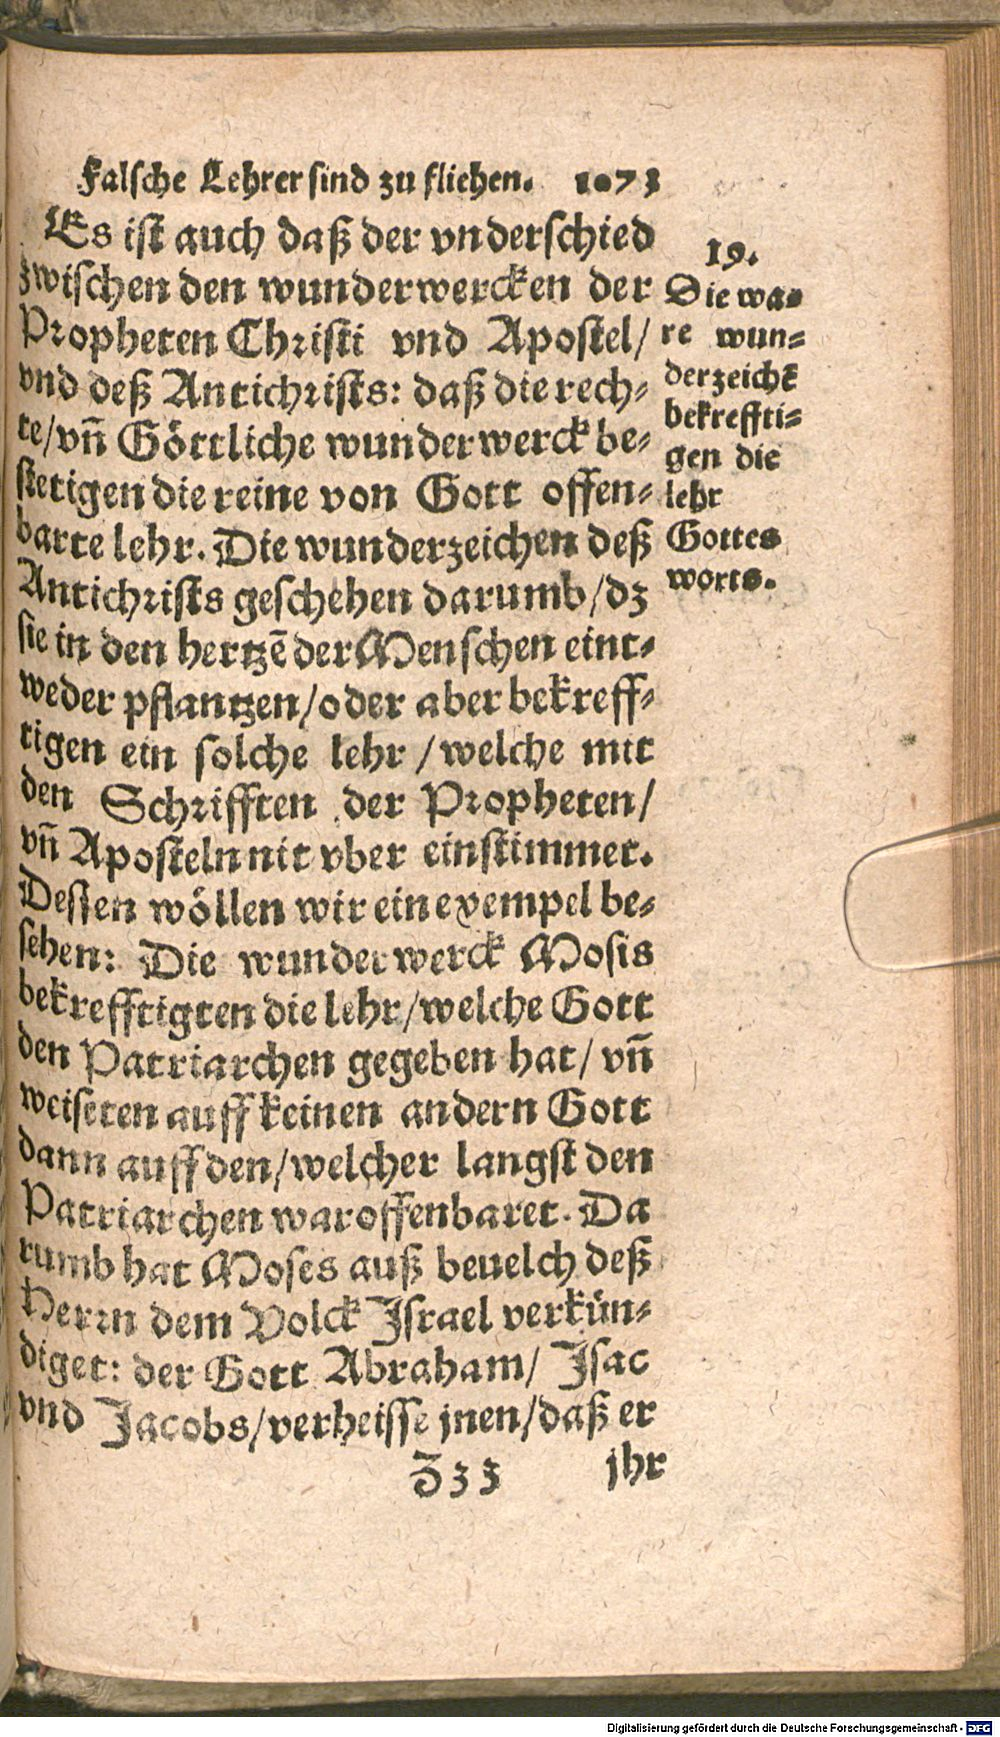 Falsche Lehrer sind zu fliehen. 1073
Es ist auch daß der vnderschied
zwischen den wunderwercken der
Propheten Christi vnd Apostel/
vnd deß Antichrists: daß die rech⸗
te/vñ Göttliche wunderwerck be⸗
stetigen die reine von Gott offen⸗
barte lehr. Die wunderzeichen deß
Antichrists geschehen darumb/dz
sie in den hertzẽ der Menschen eint⸗
weder pflantzen/oder aber bekreff⸗
tigen ein solche lehr/welche mit
den Schrifften der Propheten/
vñ Aposteln nit vber einstimmet.
Dessen wöllen wir ein exempel be⸗
sehen: Die wunderwerck Mosis
bekrefftigten die lehr/welche Gott
den Patriarchen gegeben hat/vñ
weiseten auff keinen andern Gott
dann auff den/welcher langst den
Patriarchen war offenbaret. Da
rumb hat Moses auß beuelch deß
Herrn dem Volck Israel verkün⸗
diget: der Gott Abraham/ Isac
vnd Jacobs/verheisse jnen/daß er
Zzz jhr
19.
Die wa⸗
re wun⸗
derzeichẽ
bekreffti⸗
gen die
lehr
Gottes
worts.
Digitalisierung gefördert durch die Deutsche Forschungsgemeinschaft - DFG